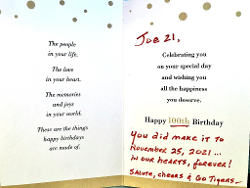 The people
in your life.
The love
in your heart.
The memories
and joys
in your world.
These are the things
happy birthdays
are made of.
Joe 21,
Celebrating you
on your special day
and wishing you
all the happiness
you deserve.
Happy 100th Birthday
You did make it to
November 25, 2021...
in our hearts, forever!
Salute, cheers & Go Tigers~